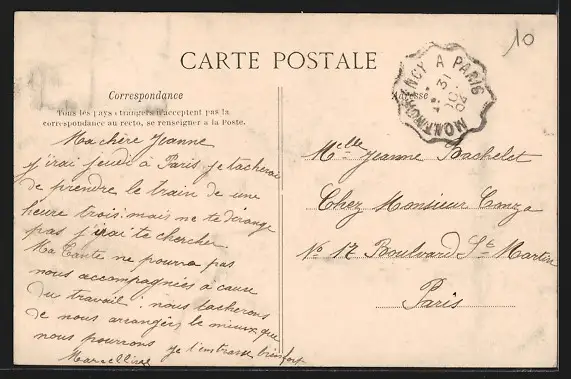 10
CARTE POSTALE
MONTMORENCY A PARIS
31
10
04
Correspondance
Adresse
Tous les pays étrangers n'acceptent pas la
correspondance au recto, se renseigner à la Poste.
Ma chère Jeanne
j'irai jeudi à Paris je tacherai
de prendre le train de une
heure trois. mais ne te dérange
pas j'irai te chercher.
Ma Tante ne pourra pas
nous accompagnées à cause
du travail; nous tacherons
de nous arranger le mieux que
nous pourrons je t'embrasse bien fort
Melle Jeanne Bachelet
Chez Monsieur
No 17 Boulvard St Martin
Paris